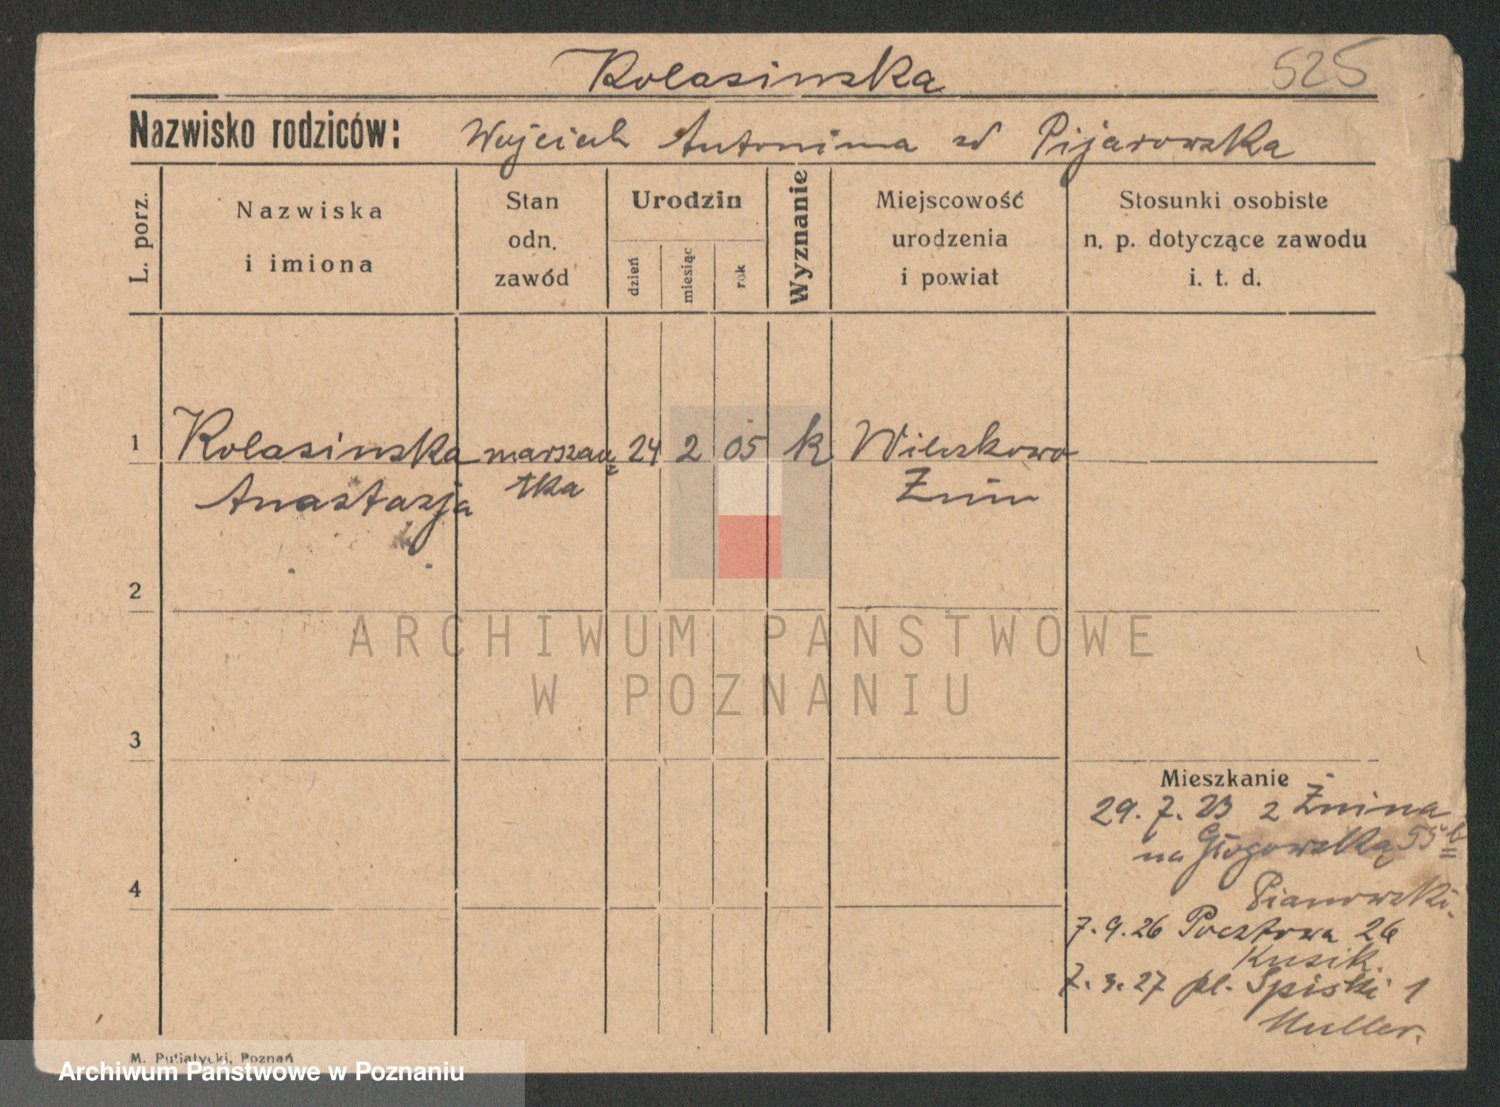 Kolasinska
525
Nazwisko rodziców: Wojciech Antonina zd Pijarowska
L. porz.
Nazwiska
i imiona
Stan
odn.
zawód
Urodzin
dzień
miesiąc
rok
Wyznanie
Miejscowość
urodzenia
i powiat
Stosunki osobiste
n. p. dotyczące zawodu
i. t. d.
1 Kolasinska 24 2 05 k
Anastazja tka Żnin
2
ARCHIWUM PAŃSTWOWE
W POZNANIU
3
Mieszkanie
29. 7. 23 z Żnina
na Głogowską 55
4
Pianowski.
7. 9. 26 Pocztowa 26
Kusik.
7. 3. 27 pl. Spiski 1
Muller.
M. Putiatycki, Poznań
Archiwum Państwowe w Poznaniu